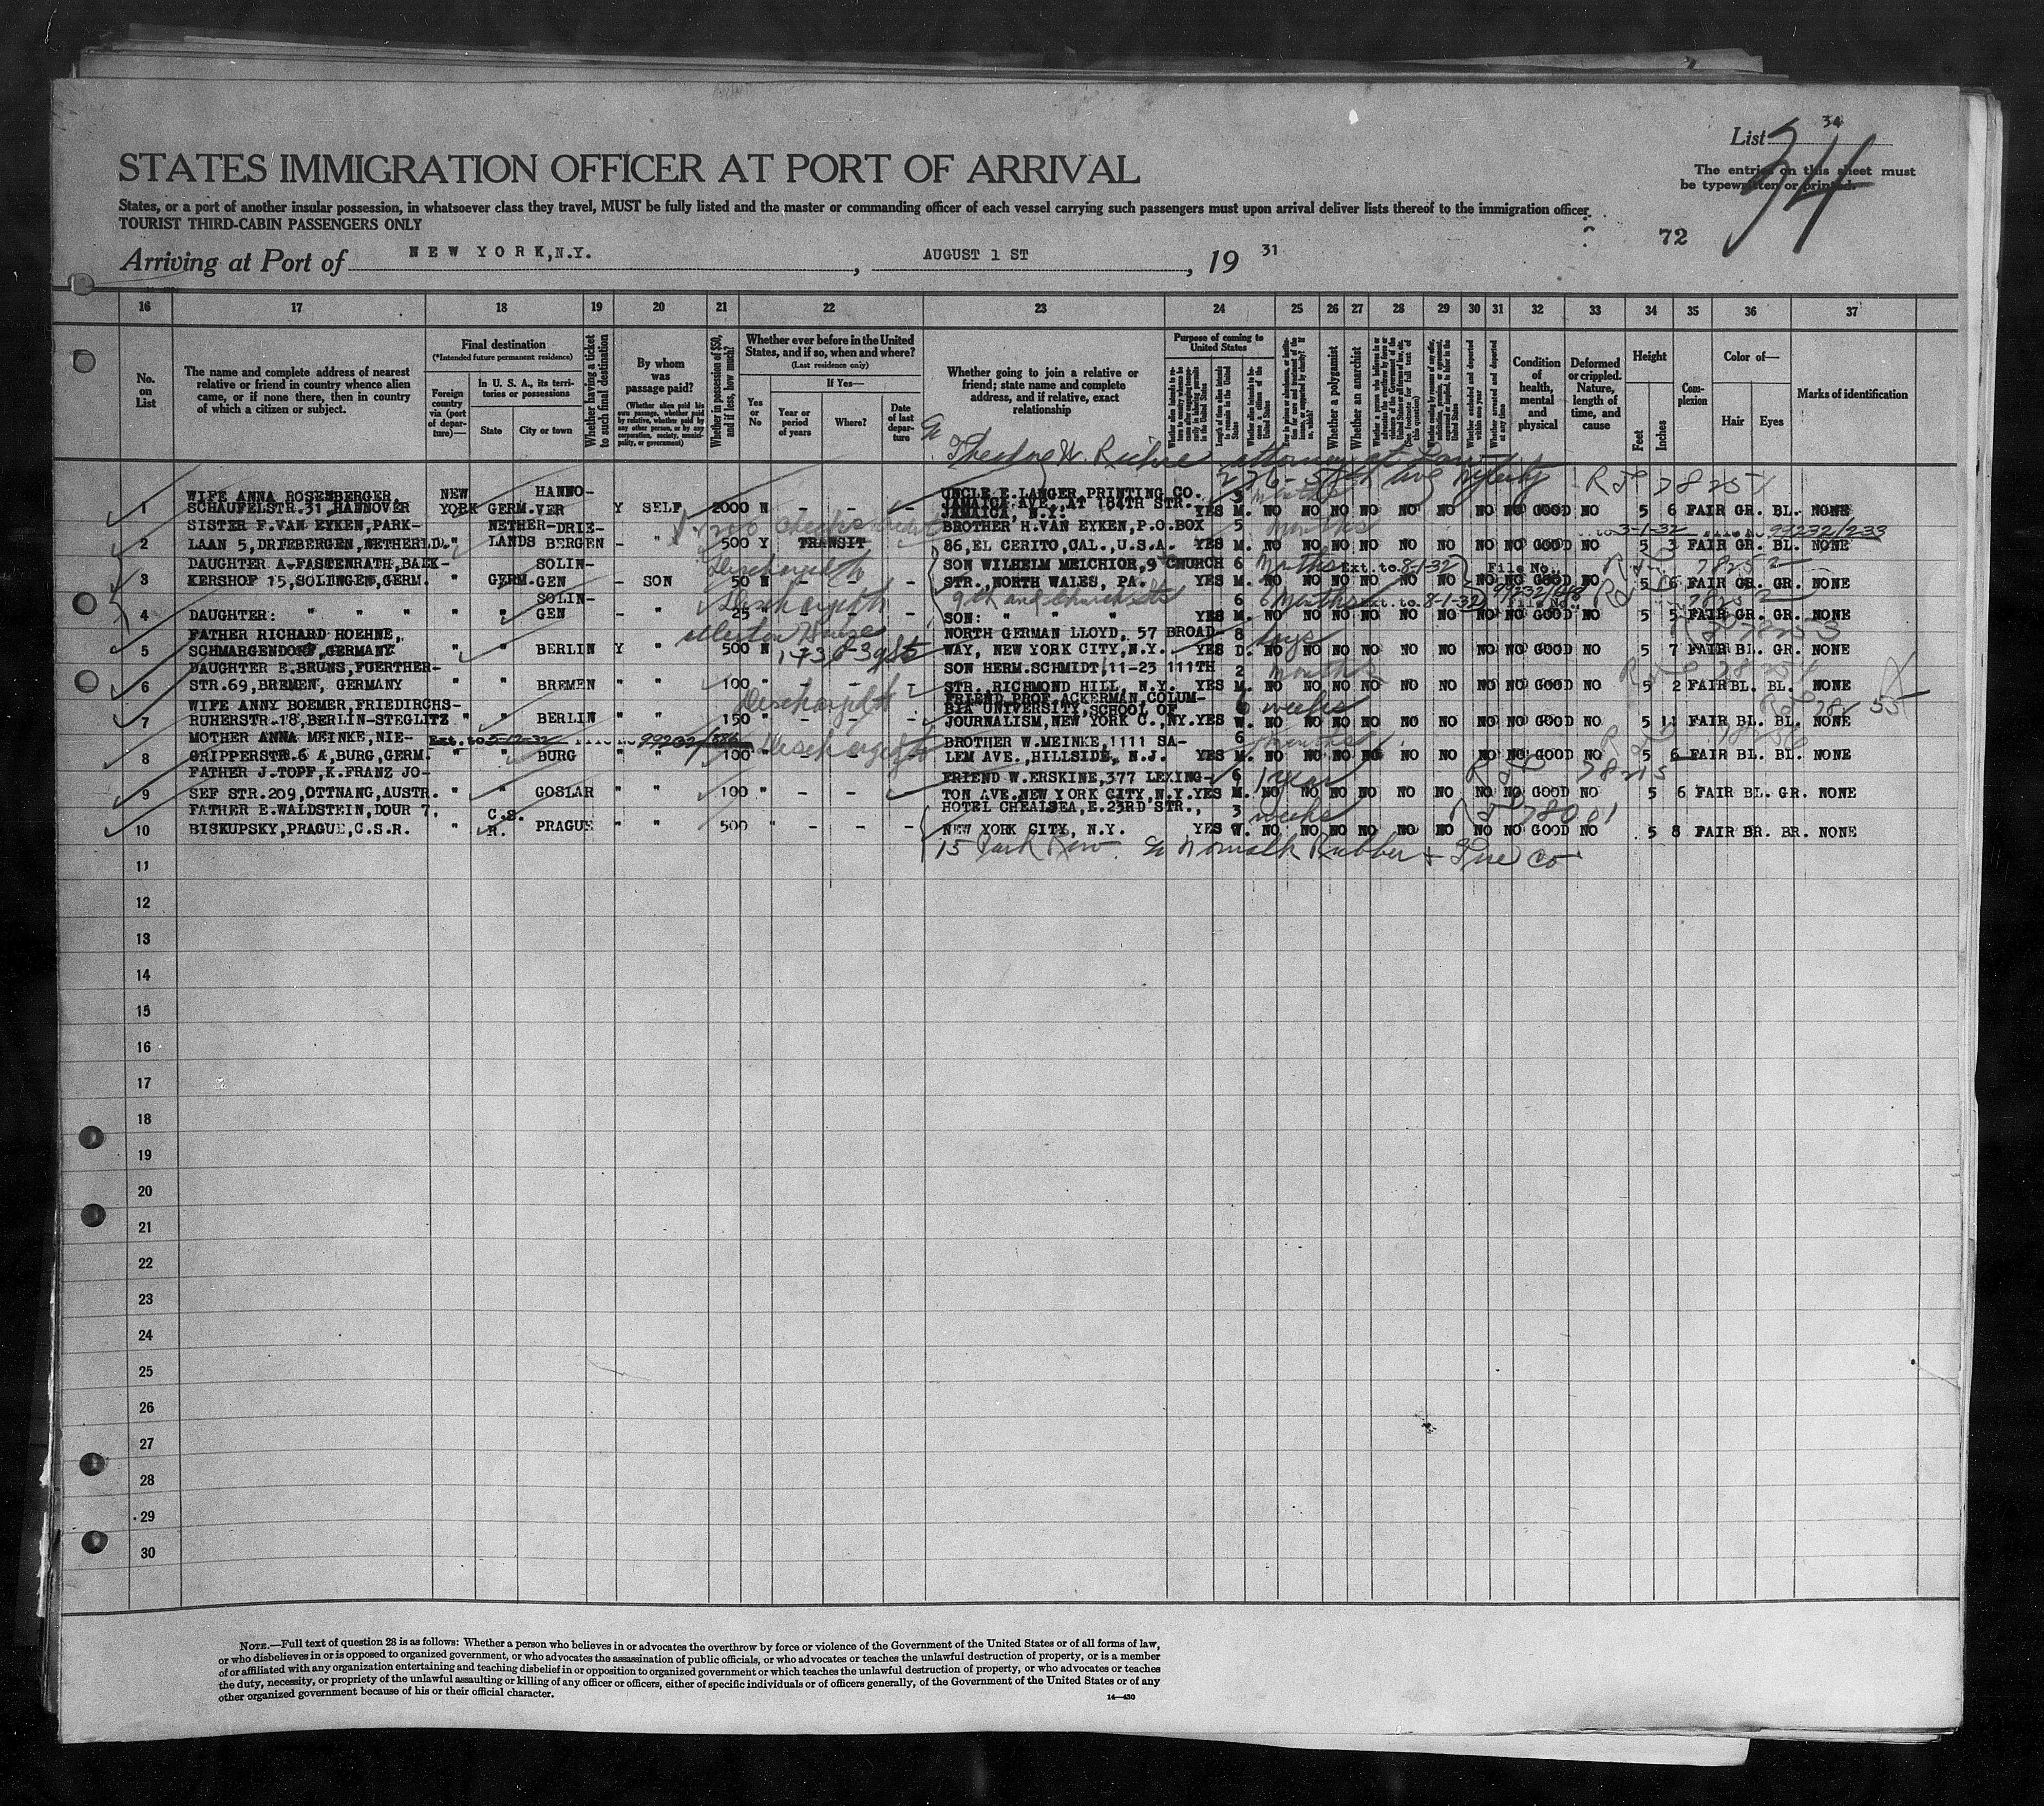 List 34
34
STATES IMMIGRATION OFFICER AT PORT OF ARRIVAL
The entries on this sheet must
be typewritten or printed.
States, or a port of another insular possession, in whatsoever class they travel, MUST be fully listed and the master or commanding officer of each vessel carrying such passengers must upon arrival deliver lists thereof to the immigration officer
TOURIST THIRD-CABIN PASSENGERS ONLY
72
Arriving at Port of NEW YORK,N.Y. , AUGUST 1 ST , 19 31
16 17 18 19 20 21 22 23 24 25 26 27 28 29 30 31 32 33 34 35 36 37
No. on List
The name and complete address of nearest relative or friend in country whence alien came, or if none there, then in country of which a citizen or subject.
Final destination
(*Intended future permanent residence)
Foreign country via (port of departure)—
In U. S. A., its territories or possessions
State
City or town
Whether having a ticket to such final destination
By whom was passage paid?
(Whether alien paid his own passage, whether paid by relative, whether paid by any other person, or by any corporation, society, municipality, or government)
Whether in possession of $50, and if less, how much?
Whether ever before in the United States, and if so, when and where?
(Last residence only)
Yes or No
If Yes—
Year or period of years
Where?
Date of last departure
Whether going to join a relative or friend; state name and complete address, and if relative, exact relationship
Purpose of coming to United States
Length of time alien intends to remain in the United States
Whether a polygamist
Whether an anarchist
Whether excluded and deported within one year
Whether arrested and deported at any time
Condition of health, mental and physical
Deformed or crippled. Nature, length of time, and cause
Height
Feet
Inches
Complexion
Color of—
Hair
Eyes
Marks of identification
Theodore W. Richie attorney at Law
1 WIFE ANNA ROSENBERGER, NEW HANNO- UNCLE E.LANGER PRINTING CO. 3 months
SCHAUFELSTR.31,HANNOVER YORK GERM. VER Y SELF 2000 N - - - JAMAICA AVE.,AT 184TH STR. JAMAICA, N.Y. YES M. NO NO NO NO NO NO NO GOOD NO 5 6 FAIR GR. BL. NONE
SISTER F.VAN EYKEN,PARK- NETHER- DRIE- BROTHER H.VAN EYKEN,P.O.BOX 5 months 3-1-32 99232/233
2 LAAN 5,DRIEBERGEN,NETHERLD. " LANDS BERGEN - " 500 Y TRANSIT 86,EL CERITO,CAL.,U.S.A. YES M. NO NO NO NO NO NO NO GOOD NO 5 3 FAIR GR. BL. NONE
DAUGHTER A.FASTENRATH,BALK- SOLIN- SON WILHELM MELCHIOR,9 CHURCH 6 months Ext. to 8-1-32 File No.
3 KERSHOF 15,SOLINGEN,GERM. " GERM. GEN - SON 50 N - - - STR.,NORTH WALES, PA. YES M. NO NO NO NO NO NO NO GOOD NO 5 6 FAIR GR. GR. NONE
SOLIN- 9th and Church sts 6 months Ext. to 8-1-32 File No.
4 DAUGHTER: " " " " " GEN - " 25 " - - - SON: " " " YES M. NO NO NO NO NO NO NO GOOD NO 5 5 FAIR GR. GR. NONE
FATHER RICHARD HOEHNE, NORTH GERMAN LLOYD, 57 BROAD- 8 days
5 SCHMARGENDORF,GERMANY " " BERLIN Y " 500 N WAY, NEW YORK CITY,N.Y. YES D. NO NO NO NO NO NO NO GOOD NO 5 7 FAIR BL. GR. NONE
DAUGHTER E.BRUNS,FUERTHER- SON HERM.SCHMIDT,11-23 111TH 2 months
6 STR.69,BREMEN, GERMANY " " BREMEN " " 100 " - - - STR. RICHMOND HILL, N.Y. YES M. NO NO NO NO NO NO NO GOOD NO 5 2 FAIR BL. BL. NONE
WIFE ANNY BOEMER,FRIEDIRCHS- FRIEND PROF.ACKERMAN,COLUMBIA UNIVERSITY,SCHOOL OF 6 weeks
7 RUHERSTR.18,BERLIN-STEGLITZ " " BERLIN " " 150 " - - - JOURNALISM,NEW YORK C.,NY. YES W. NO NO NO NO NO NO NO GOOD NO 5 11 FAIR BL. BL. NONE
MOTHER ANNA MEINKE,NIE- Ext. to 5-12-32 99232/886 BROTHER W.MEINKE,1111 SA- 6 months
8 GRIPPERSTR.6 A,BURG,GERM. " " BURG " " 100 " - - - LEM AVE.,HILLSIDE, N.J. YES M. NO NO NO NO NO NO NO GOOD NO 5 6 FAIR BL. BL. NONE
FATHER J.TOPF,K.FRANZ JO- FRIEND W.ERSKINE,377 LEXING- 6 1 year 78215
9 SEF STR.209,OTTNANG,AUSTR. " " GOSLAR " " 100 " - - - TON AVE.NEW YORK CITY,N.Y. YES M. NO NO NO NO NO NO NO GOOD NO 5 6 FAIR BL. GR. NONE
FATHER E.WALDSTEIN,DOUR 7, C.S. HOTEL CHEALSEA,E.23RD STR., 3 weeks 78001
10 BISKUPSKY,PRAGUE,C.S.R. " R. PRAGUE " " 500 " - - - NEW YORK CITY, N.Y. YES W. NO NO NO NO NO NO NO GOOD NO 5 8 FAIR BR. BR. NONE
15 Park Row Norwalk Rubber + Tire Co
11
12
13
14
15
16
17
18
19
20
21
22
23
24
25
26
27
28
29
30
NOTE.—Full text of question 28 is as follows: Whether a person who believes in or advocates the overthrow by force or violence of the Government of the United States or of all forms of law,
or who disbelieves in or is opposed to organized government, or who advocates the assassination of public officials, or who advocates or teaches the unlawful destruction of property, or is a member
of or affiliated with any organization entertaining and teaching disbelief in or opposition to organized government or which teaches the unlawful destruction of property, or who advocates or teaches
the duty, necessity, or propriety of the unlawful assaulting or killing of any officer or officers, either of specific individuals or of officers generally, of the Government of the United States or of any
other organized government because of his or their official character.
14—430